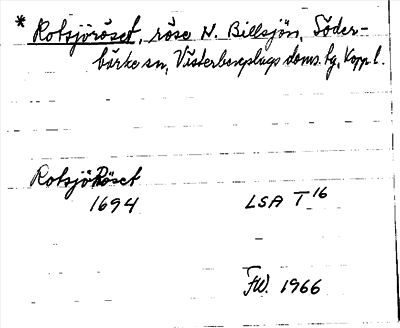 * Rotsjöröset, röse N. Billsjön, Söder-
bärke sn, Västerbergslags doms. tg, Kopp l.
Rotsjöröset
1694 LSA T 16
FW. 1966